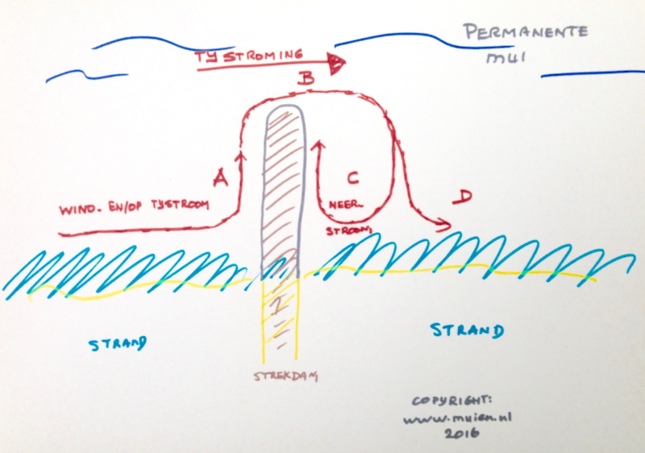 PERMANENTE
mui
TY STROMING
B
A
C
D
WIND- EN/OF TYSTROOM
NEER-
STROOM
STRAND
STRAND
STREKDAM
COPYRIGHT:
www.muien.nl
2016